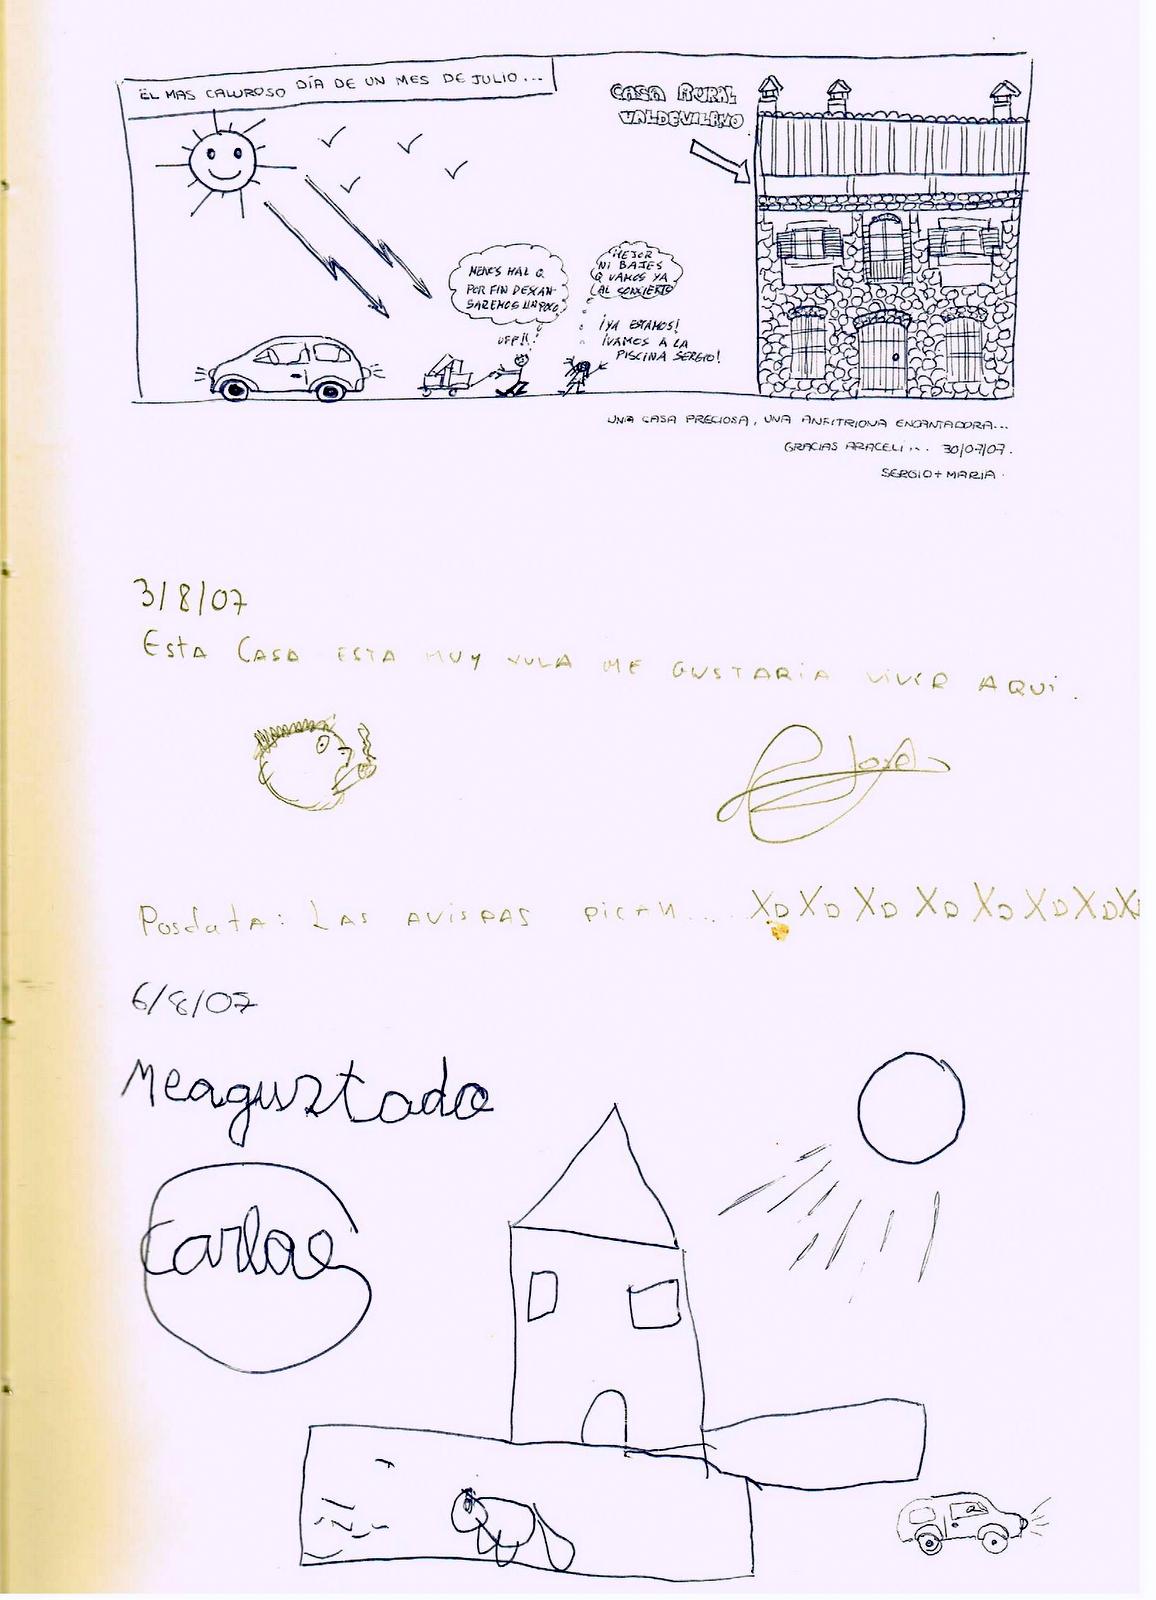 EL MAS CALUROSO DÍA DE UN MES DE JULIO...
CASA RURAL
VALDEVILANO
MENOS MAL Q
POR FIN DESCAN-
SAREMOS UN POCO
UFF!!
MEJOR
NI BAJES
Q VAMOS YA
AL CONCIERTO
¡YA ESTAMOS!
¡VAMOS A LA
PISCINA SERGIO!
UNA CASA PRECIOSA, UNA ANFITRIONA ENCANTADORA...
GRACIAS ARACELI... 30/07/07.
SERGIO + MARIA.
3/8/07
ESTA CASA ESTA MUY XULA ME GUSTARIA VIVIR AQUI.
Posdata: LAS AVISPAS PICAN... XD XD XD XD XD XD XD X
6/8/07
Meagustado